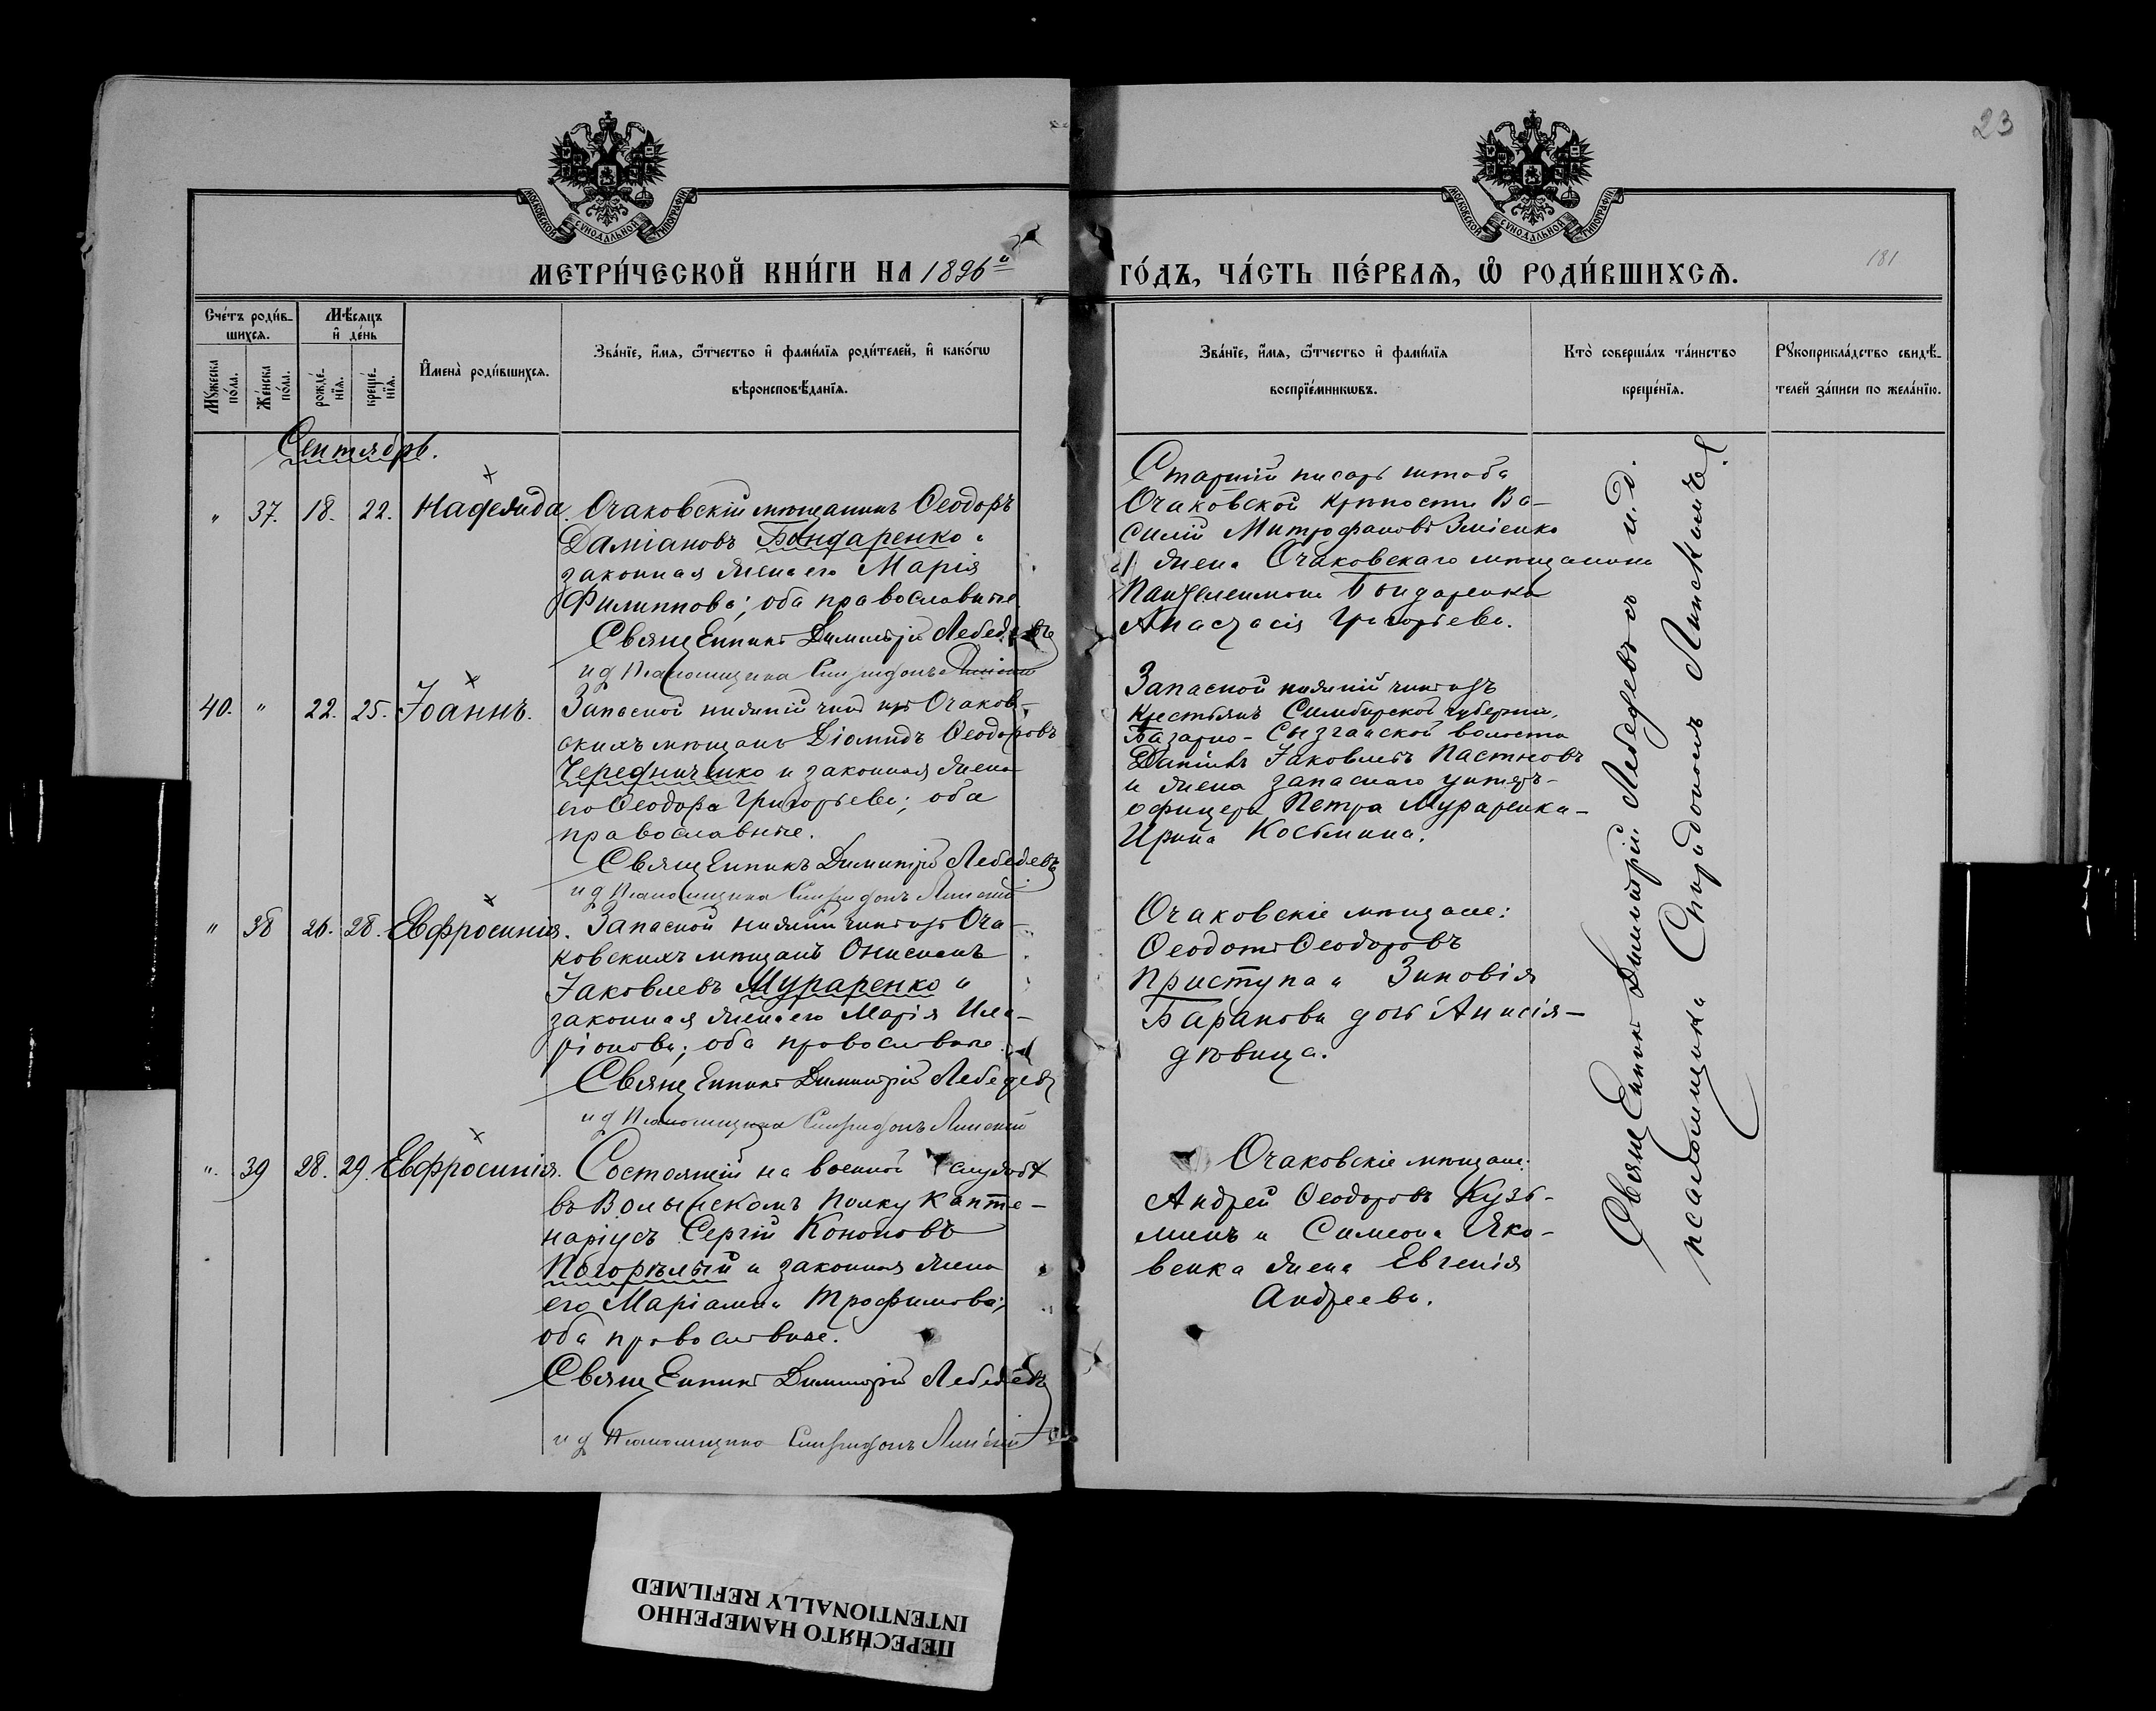 23
181
МОСКОВСКОЙ СУНОДАЛЬНОЙ ТИПОГРАФІИ
МОСКОВСКОЙ СУНОДАЛЬНОЙ ТИПОГРАФІИ
МЕТРИ́ЧЕСКОЙ КНИ́ГИ НА 1896й
ГО́ДЪ, ЧА́СТЬ ПЕ́РВАѦ, Ѽ РОДИ́ВШИХСѦ.
Сче́тъ роди́в-
шихсѧ.
Мꙋ́жеска по́ла.
Же́нска по́ла.
Мѣ́сѧцъ
и҆ де́нь
рожде́-
нїѧ.
креще́-
нїѧ.
И҆мена̀ роди́вшихсѧ.
Зва́нїе, и҆́мѧ, ѻ҆́тчество и҆ фами́лїѧ роди́телей, и҆ како́гѡ
вѣроисповѣ́данїѧ.
Зва́нїе, и҆́мѧ, ѻ҆́тчество и҆ фами́лїѧ
воспрїе́мникѡвъ.
Кто̀ соверша́лъ та́инство
креще́нїѧ.
Рꙋкоприкла́дство свидѣ́-
телей за́писи по жела́нїю.
Сентябрь.
" 37. 18. 22. Надежда. Очаковскій мѣщанинъ Ѳеодоръ
Даміановъ Бондаренко и
законная жена его Марія
Филиппова; оба православные
Священникъ Димитрій Лебедевъ
и д псаломщика Спиридонъ Липскій
Старшій писарь штаба
Очаковской крѣпости Ва-
силій Митрофановъ Зміенко
и жена Очаковскаго мѣщанина
Пантелеимона Бондаренка
Анастасія Григорьева.
40. " 22. 25. Іоаннъ. Запасной нижній чинъ изъ Очаков-
скихъ мѣщанъ Діомидъ Ѳеодоровъ
Чередниченко и законная жена
его Ѳеодора Григорьева; оба
православные.
Священникъ Димитрій Лебедевъ
и д псаломщика Спиридонъ Липскій
Запасной нижній чинъ изъ
крестьянъ Симбирской губерніи,
Базарно-Сызганской волости
Даніилъ Іаковлевъ Пастновъ
и жена запаснаго унтеръ-
офицера Петра Мураренка-
Ирина Косьмина.
" 38 26. 28. Евфросинія. Запасной нижній чинъ изъ Оча-
ковскихъ мѣщанъ Онисимъ
Іаковлевъ Мураренко и
законная жена его Марія Ила-
ріонова; оба православные.
Священникъ Димитрій Лебедевъ
и д псаломщика Спиридонъ Липскій
Очаковскіе мѣщане:
Ѳеодотъ Ѳеодоровъ
Приступа и Зиновія
Баранова дочь Анисія-
дѣвица.
" 39 28. 29. Евфросинія. Состоящій на военной службѣ
въ Волынскомъ полку капте-
наріусъ Сергій Кононовъ
Погорѣлый и законная жена
его Маріамна Трофимова;
оба православные.
Священникъ Димитрій Лебедевъ
и д псаломщика Спиридонъ Липскій
Очаковскіе мѣщане:
Андрей Ѳеодоровъ Кузь-
минъ и Симеона Яко-
венка жена Евгенія
Андреева.
Священникъ Димитрій Лебедевъ съ и. д.
псаломщика Спиридономъ Липскимъ
ПЕРЕСНЯТО НАМЕРЕННО
INTENTIONALLY REFILMED